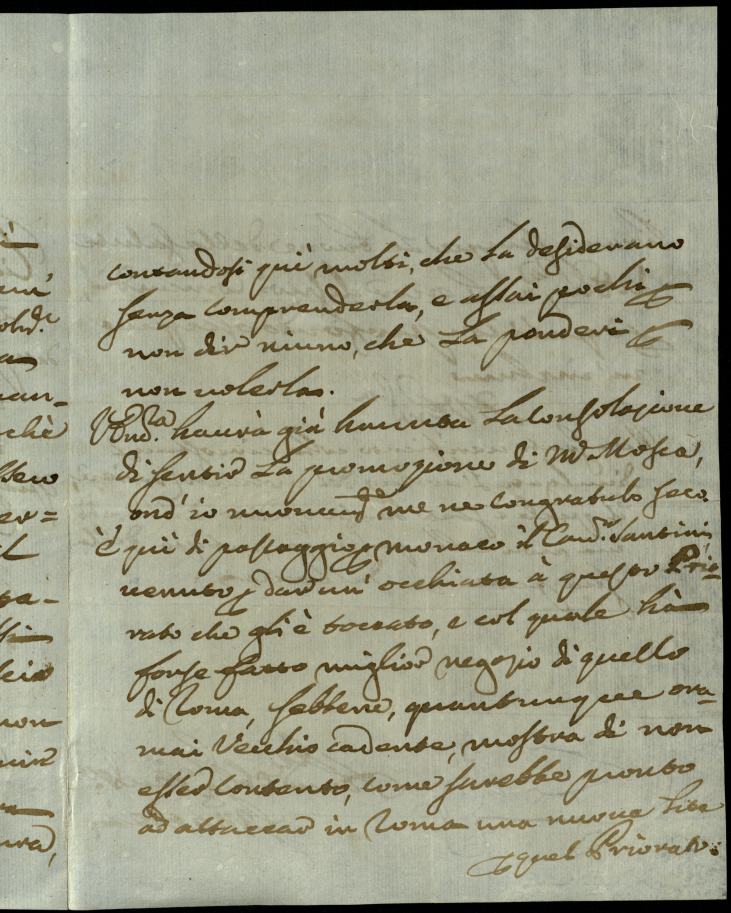 contandosi quì molti, che La desiderano
senza comprenderla, e assai pochi p
non dir niuno, che La ponderi p
non volerla.
V. Em.za haurà già hauuta La Consolazione
di sentir La promozione di M.r Mosca,
ond' io nuouam.te me ne Congratulo seco.
È quì di passaggio p monaco il Cau.r Santini,
uenuto p dar un' occhiata à questo Prio-
rato che gli è toccato, e col quale hà
forse fatto miglior negozio di quello
di Roma, sebbene, quantunque ora-
mai Vecchio cadente, mostra di non
esser Contento, come sarebbe pronto
ad attaccar in Roma una nuoua Lite
p quel Priorato.